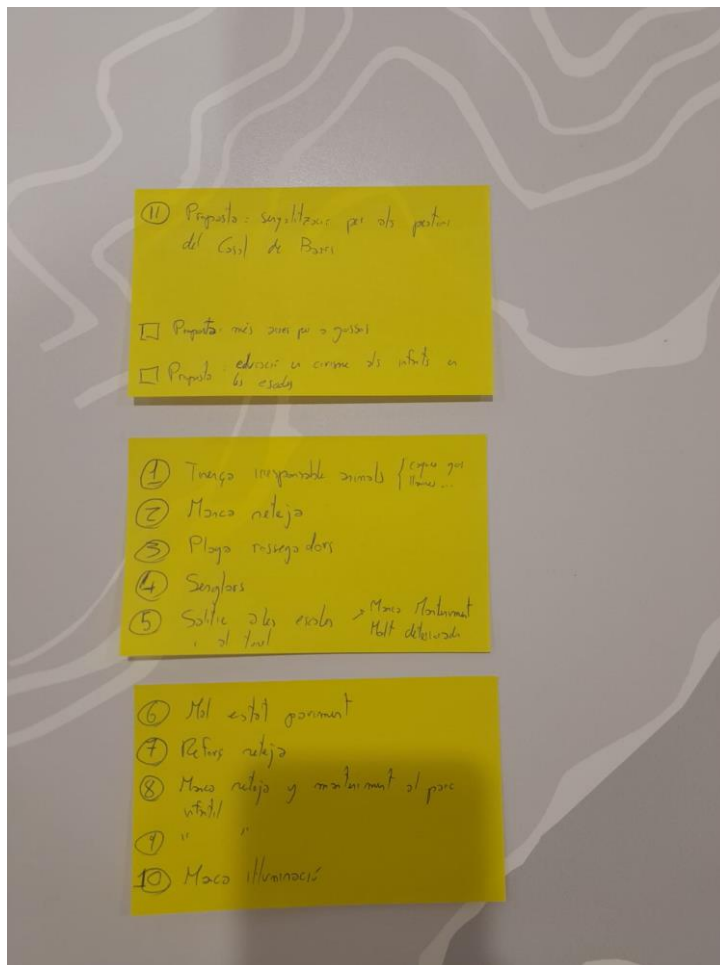 ⑪ Proposta: senyalització per als
del Casal de Barri
□ Proposta: més àrees per a gossos
□ Proposta: educació en civisme als infants en
les escoles
① Tinença irresponsable animals {
② Manca neteja
③ Plaga rossegadors
④ Senglars
⑤ a les escales → Manca Manteniment
i al Molt deteriorada
⑥ Mal estat paviment
⑦ Reforç neteja
⑧ Manca neteja y manteniment al parc
infantil
⑨ " "
⑩ Manca il·luminació